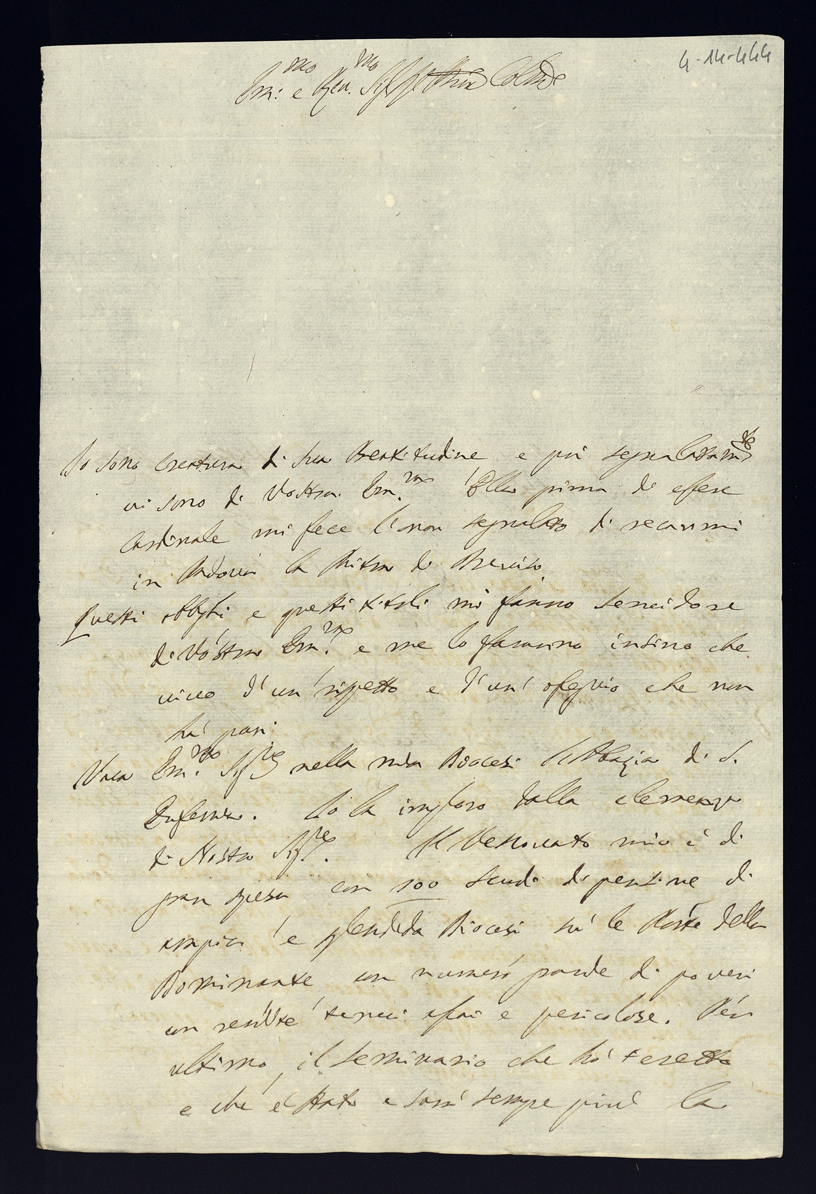 4-14-444
Em.mo e Rev.mo Sig.r Sig.r P'rone Col.mo
Io sono creatura di Sua Beatitudine e poi segnalatam.te
vi sono di Vostra Em.za Ella prima di essere
Cardinale mi fece l'onor segnalato di recarmi
in Padova la Mitra di
Questi obblighi e questi titoli mi fanno servidore
di Vostra Em.za e me lo faranno insino che
vivo d'un rispetto e d'un' ossequio che non
há pari
Vaca Em.mo Sig.re nella mia Diocesi l'Abbazia di S.
Eufemia. Io la imploro dalla clemenza
di Nostro Sig.re. Il Vescovato mio é di
gran spesa con 500 scudi di pensione di
ampia é splendida Diocesi sú le Porte della
Dominante con numeró grande di poveri
con rendite tenui assai e pericolose. Per
ultimo, il seminario che hó eretto
e che é stato e sará sempre piú la